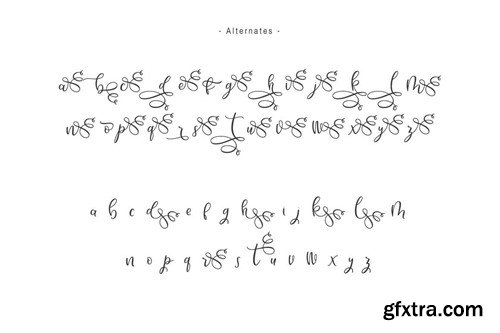 - Alternates -
a b c d e f g h i j k l m
n o p q r s t u v w x y z
a b c d e f g h i j k l m
n o p q r s t u v w x y z
gfxtra.com